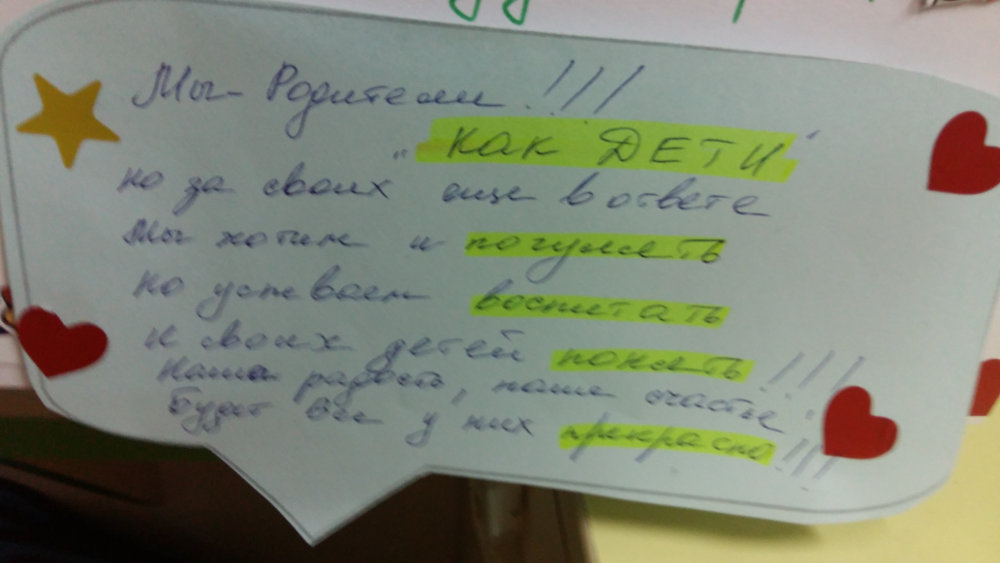 Мы - Родители!!!
"КАК ДЕТИ"
но за своих еще в ответе
Мы хотим и погулять
но успеваем воспитать
и своих детей понять!!!
Наша радость, наше счастье!
Будет все у них прекрасно!!!